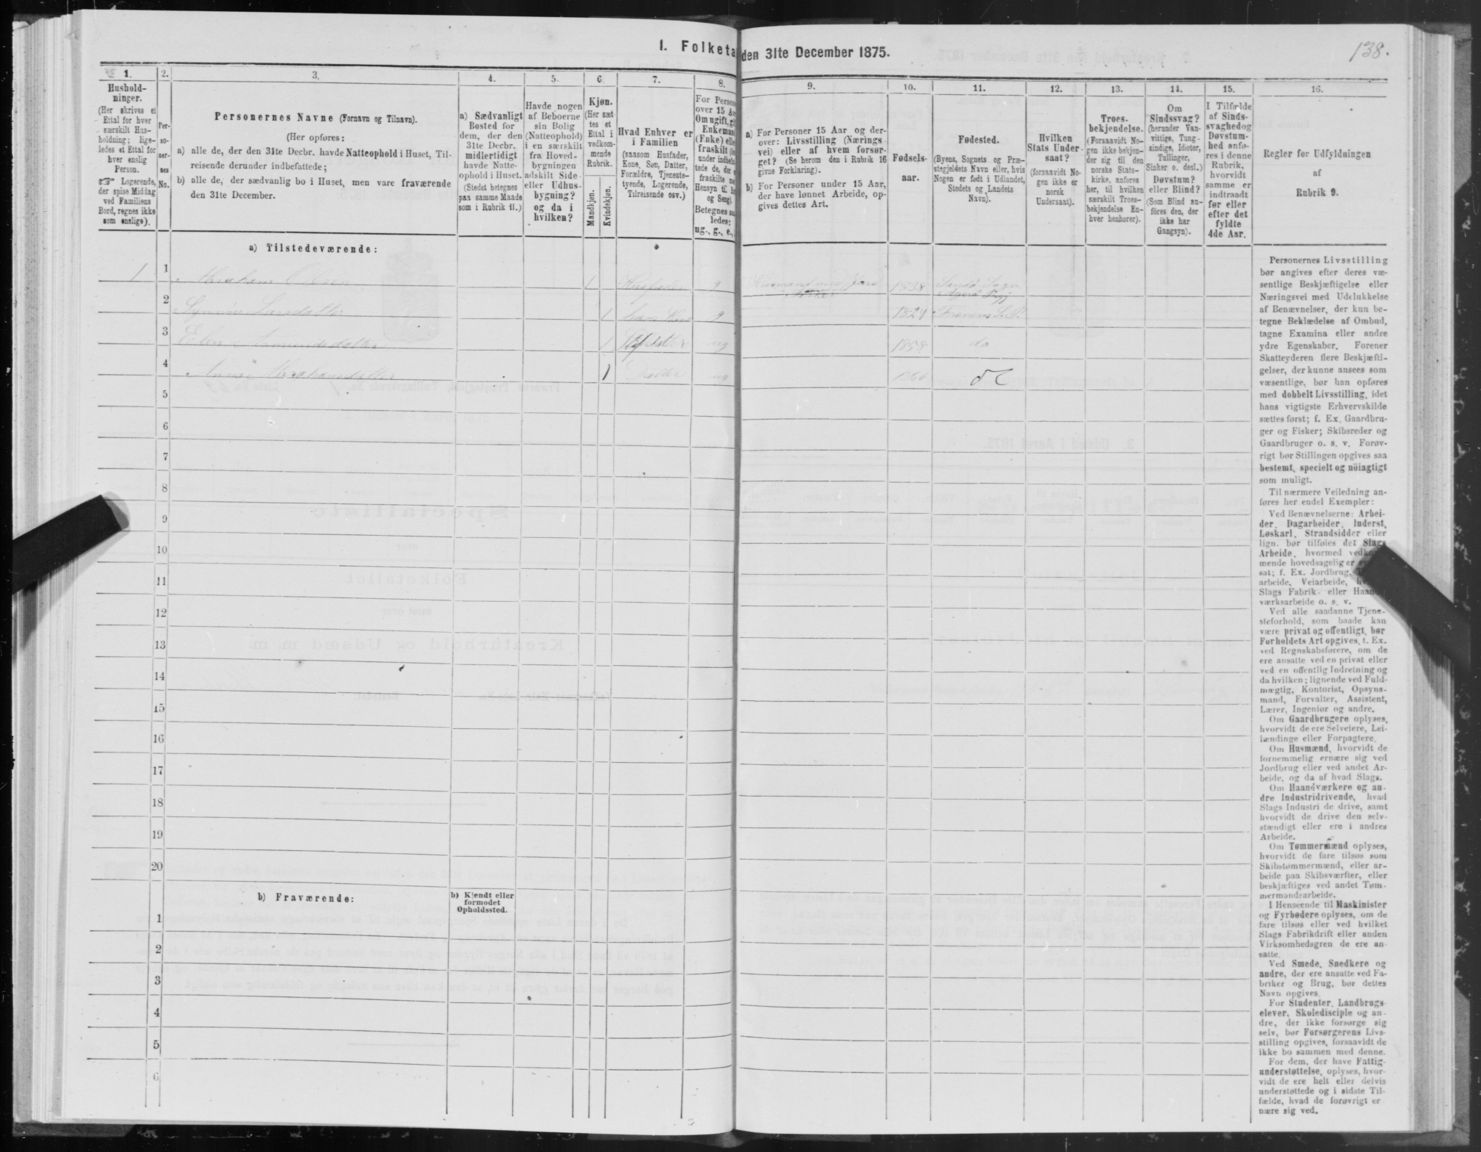 138.
I. Folketa den 31te December 1875.
1.
Hushold-
ninger.
(Her skrives et
Ettal for hver
særskilt Hus-
holdning; lige-
ledes et Ettal for
hver enslig
Person.
Logerende,
der spise Middag
ved Familiens
Bord, regnes ikke
som enslige).
2.
Per-
so-
ner-
nes
No.
3.
Personernes Navne (Fornavn og Tilnavn).
(Her opføres:
a) alle de, der den 31te Decbr. havde Natteophold i Huset, Til-
reisende derunder indbefattede;
b) alle de, der sædvanlig bo i Huset, men vare fraværende
den 31te December.
4.
a) Sædvanligt
Bosted for
dem, der den
31te Decbr.
midlertidigt
havde Natte-
ophold i Huset.
(Stedet betegnes
paa samme Maade
som i Rubrik 11.)
5.
Havde nogen
af Beboerne
sin Bolig
(Natteophold)
i en særskilt
fra Hoved-
bygningen
adskilt Side-
eller Udhus-
bygning?
og da i
hvilken?
6.
Kjøn.
(Her sæt
tes et
Ettal i
vedkom-
mende
Rubrik.
Mandkjøn.
Kvindekjøn.
7.
Hvad Enhver er
i Familien
(saasom Husfader,
Kone, Søn, Datter,
Forældre, Tjeneste-
tyende, Logerende,
Tilreisende osv.)
8.
For Perso
over 15 A
Om ugift, g
Enkeman
(Fuke) elle
fraskilt
under indbe
tede de, der
fraskilte
Hensyn til
og Seng).
Betegnes
ledes:
ug., g., e.,
9.
a) For Personer 15 Aar og der-
over: Livsstilling (Nærings-
vei) eller af hvem forsør-
get? (Se herom den i Rubrik 16
givne Forklaring).
b) For Personer under 15 Aar,
der have lønnet Arbeide, op-
gives dettes Art.
10.
Fødsels-
aar.
11.
Fødested.
(Byens, Sognets og Præ-
stegjeldets Navn eller, hvis
Nogen er født i Udlandet,
Stedets og Landets
Navn).
12.
Hvilken
Stats Under-
saat?
(foraavidt No-
gen ikke er
norsk
Undersaat).
13.
Troes-
bekjendelse.
(Foraavidt No-
gen ikke bekjen-
der sig til den
norske Stats-
kirke, anføres
her, til hvilken
særskilt Troes-
bekjendelse En-
hver henhorer).
14.
Om
Sindssvag?
(herunder Van-
vittige, Tung-
sindige, Idioter,
Tullinger,
Sinker o. desl.)
Døvstum?
eller Blind?
(Som Blind an-
føres den, der
ikke har
Gangsyn).
15.
I Tilfælde
af Sinds-
svaghed og
Døvstum-
hed anfø-
res i denne
Rubrik,
hvorvidt
samme er
indtraadt
før eller
efter det
fyldte
4de Aar.
16.
Regler før Udfyldningen
af
Rubrik 9.
a) Tilstedeværende:
1 1 Abraham Olsen 1 Husfader g 1838
2 1 g 1829
3 1 ug 1859 do
4 Anne Abrahamsdatter 1 ug 1866
5
6
7
8
9
10
11
12
13
14
15
16
17
18
19
20
b) Fraværende:
b) Kjendt eller
formodet
Opholdssted.
1
2
3
4
5
6
Personernes Livsstilling
bør angives efter deres væ-
sentlige Beskjæftigelse eller
Næringsvei med Udelukkelse
af Benævnelser, der kun be-
tegne Beklædelse af Ombud,
tagne Examina eller andre
ydre Egenskaber. Forener
Skatteyderen flere Beskjæfti-
gelser, der kunne ansees som
væsentlige, bør han opføres
med dobbelt Livsstilling, idet
hans vigtigste Erhvervskilde
sættes først; f. Ex. Gaardbru-
ger og Fisker; Skibsreder og
Gaardbruger o. s. v. Forøv-
rigt bør Stillingen opgives saa
bestemt, specielt og nöiagtigt
som muligt.
Til nærmere Veiledning an-
føres her endel Exempler:
Ved Benævnelserne: Arbei-
der, Dagarbeider, Inderst,
Løskarl, Strandsidder eller
lign. bør tilføies det Slags
Arbeide, hvormed vedkom-
mende hovedsagelig er
sat; f. Ex. Jordbrug,
arbeide, Veiarbeide,
Slags Fabrik- eller Haand-
værksarbeide o. s. v.
Ved alle saadanne Tjene-
steforhold, som baade kan
være privat og offentligt, bør
Forholdets Art opgives, f. Ex.
ved Regnskabsførere, om de
ere ansatte ved en privat eller
ved en offentlig Indretning og
da hvilken; lignende ved Fuld-
mægtig, Kontorist, Opsyns-
mand, Forvalter, Assistent,
Lærer, Ingeniør og andre.
Om Gaardbrugere oplyses,
hvorvidt de ere Selveiere, Lei-
lændinge eller Forpagtere.
Om Husmænd, hvorvidt de
fornemmelig ernære sig ved
Jordbrug eller ved andet Ar-
beide, og da af hvad Slags.
Om Haandværkere og an-
dre Industridrivende, hvad
Slags Industri de drive, samt
hvorvidt de drive den selv-
stændigt eller ere i andres
Arbeide.
Om Tømmermænd oplyses,
hvorvidt de fare tilsøs som
Skibstømmermænd, eller ar-
beide paa Skibsværfter, eller
beskjæftiges ved andet Tøm-
mermandsarbeide.
I Henseende til Maskinister
og Fyrbødere oplyses, om de
fare tilsøs eller ved hvilket
Slags Fabrikdrift eller anden
Virksomhedsgren de ere an-
satte.
Ved Smede, Snedkere og
andre, der ere ansatte ved Fa-
briker og Brug, bør dettes
Navn opgives.
For Studenter, Landbrugs-
elever, Skoledisciple og an-
dre, der ikke forsørge sig
selv, bør Forsørgerens Livs-
stilling opgives, forsaavidt de
ikke bo sammen med denne.
For dem, der have Fattig-
understøttelse, oplyses, hvor-
vidt de ere helt eller delvis
understøttede og i sidste Til-
fælde, hvad de forøvrigt er
nære sig ved.